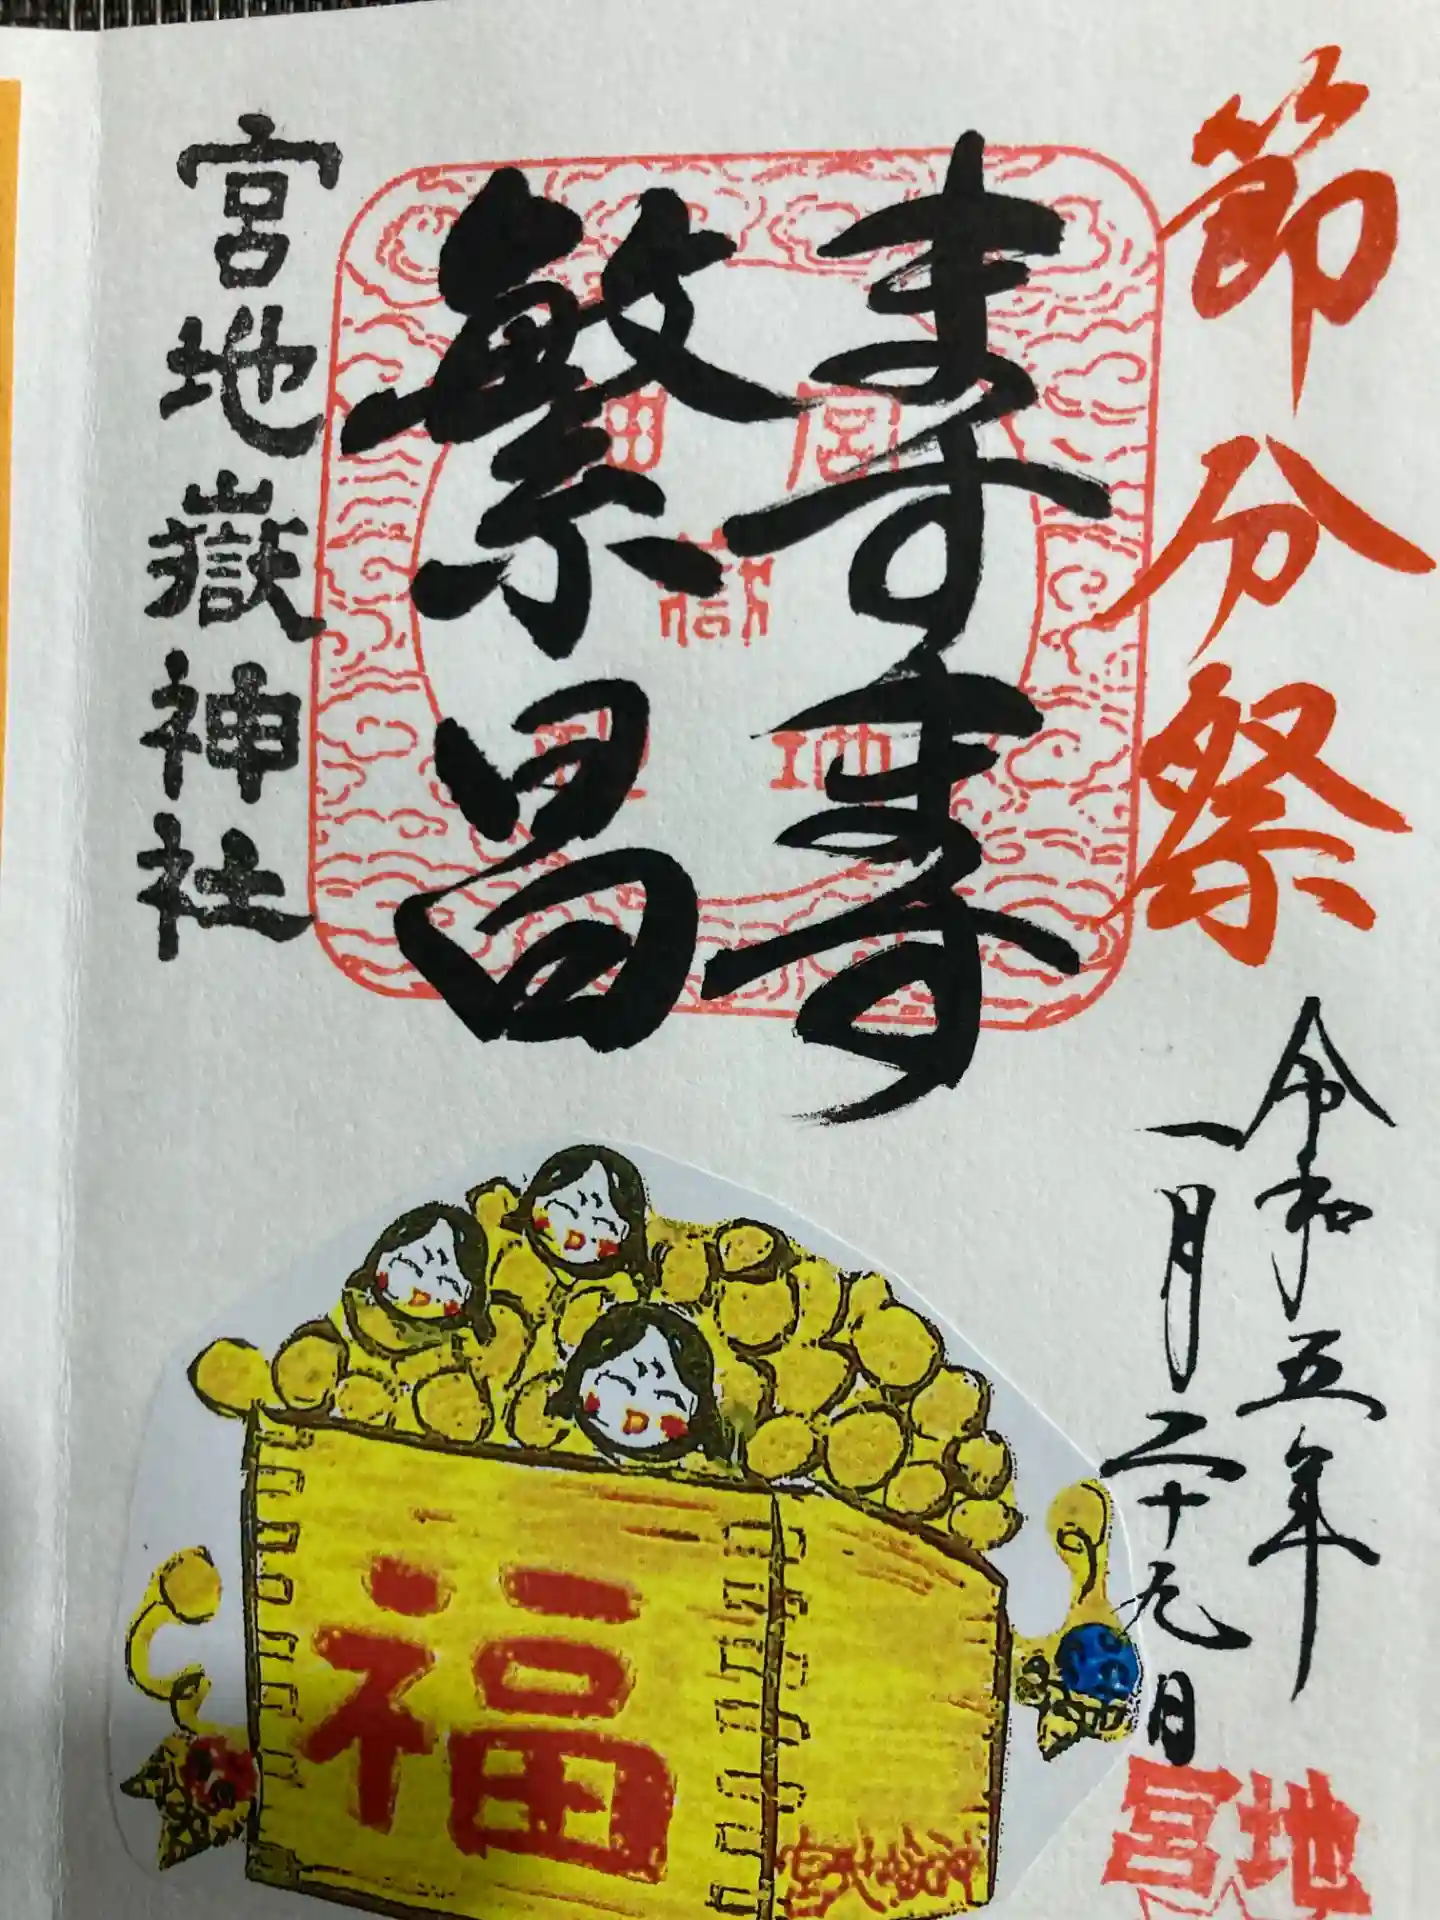 節分祭
令和五年
一月二十九日
寿寿
繁昌
宮地嶽神社
福
宮地